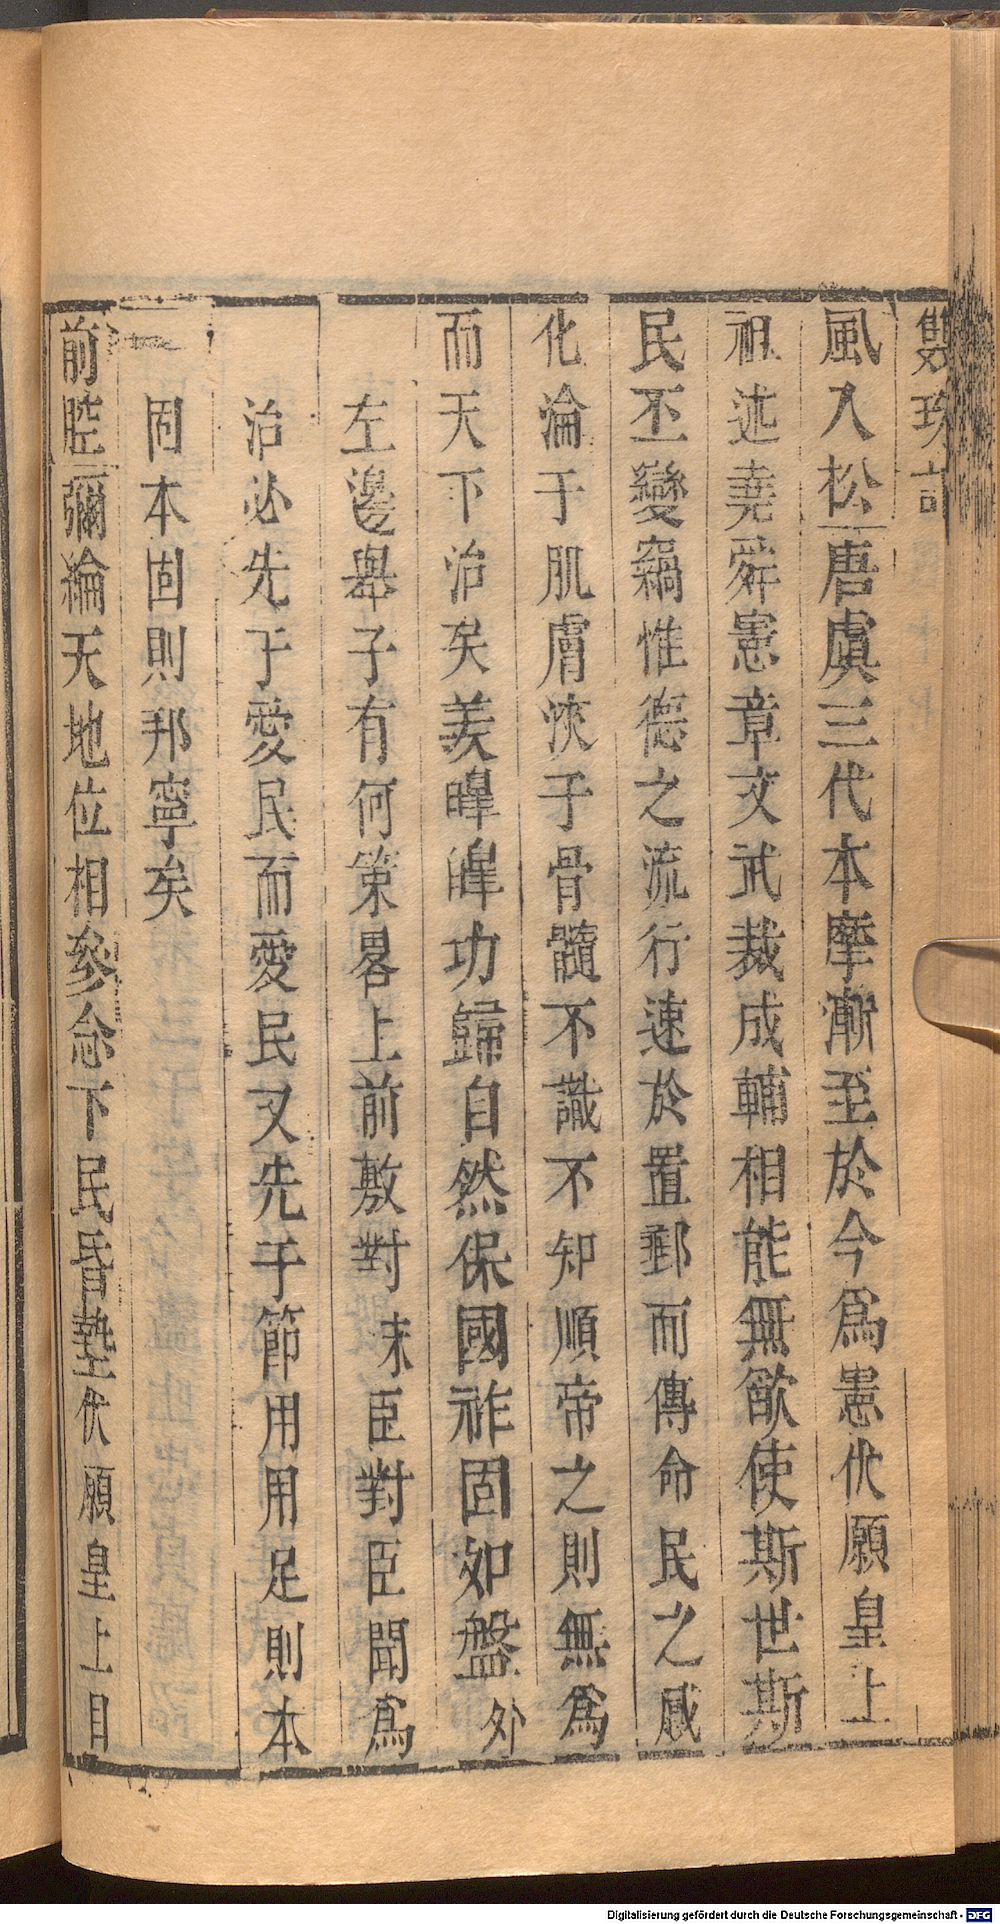 雙珠記
風入松唐虞三代本摩漸至於今爲憲伏願皇上
祖述堯舜憲章文武裁成輔相能無斁使斯世斯
民丕變竊惟德之流行速於置郵而傳命民之感
化淪于肌膚浹于骨髓不識不知順帝之則無爲
而天下治矣美皥皥功歸自然保國祚固如盤外
左邊舉子有何策畧上前敷對末臣對臣聞爲
治必先于愛民而愛民又先于節用用足則本
固本固則邦寧矣
前腔彌綸天地位相參念下民昏墊伏願皇上目
Digitalisierung gefördert durch die Deutsche Forschungsgemeinschaft - DFG